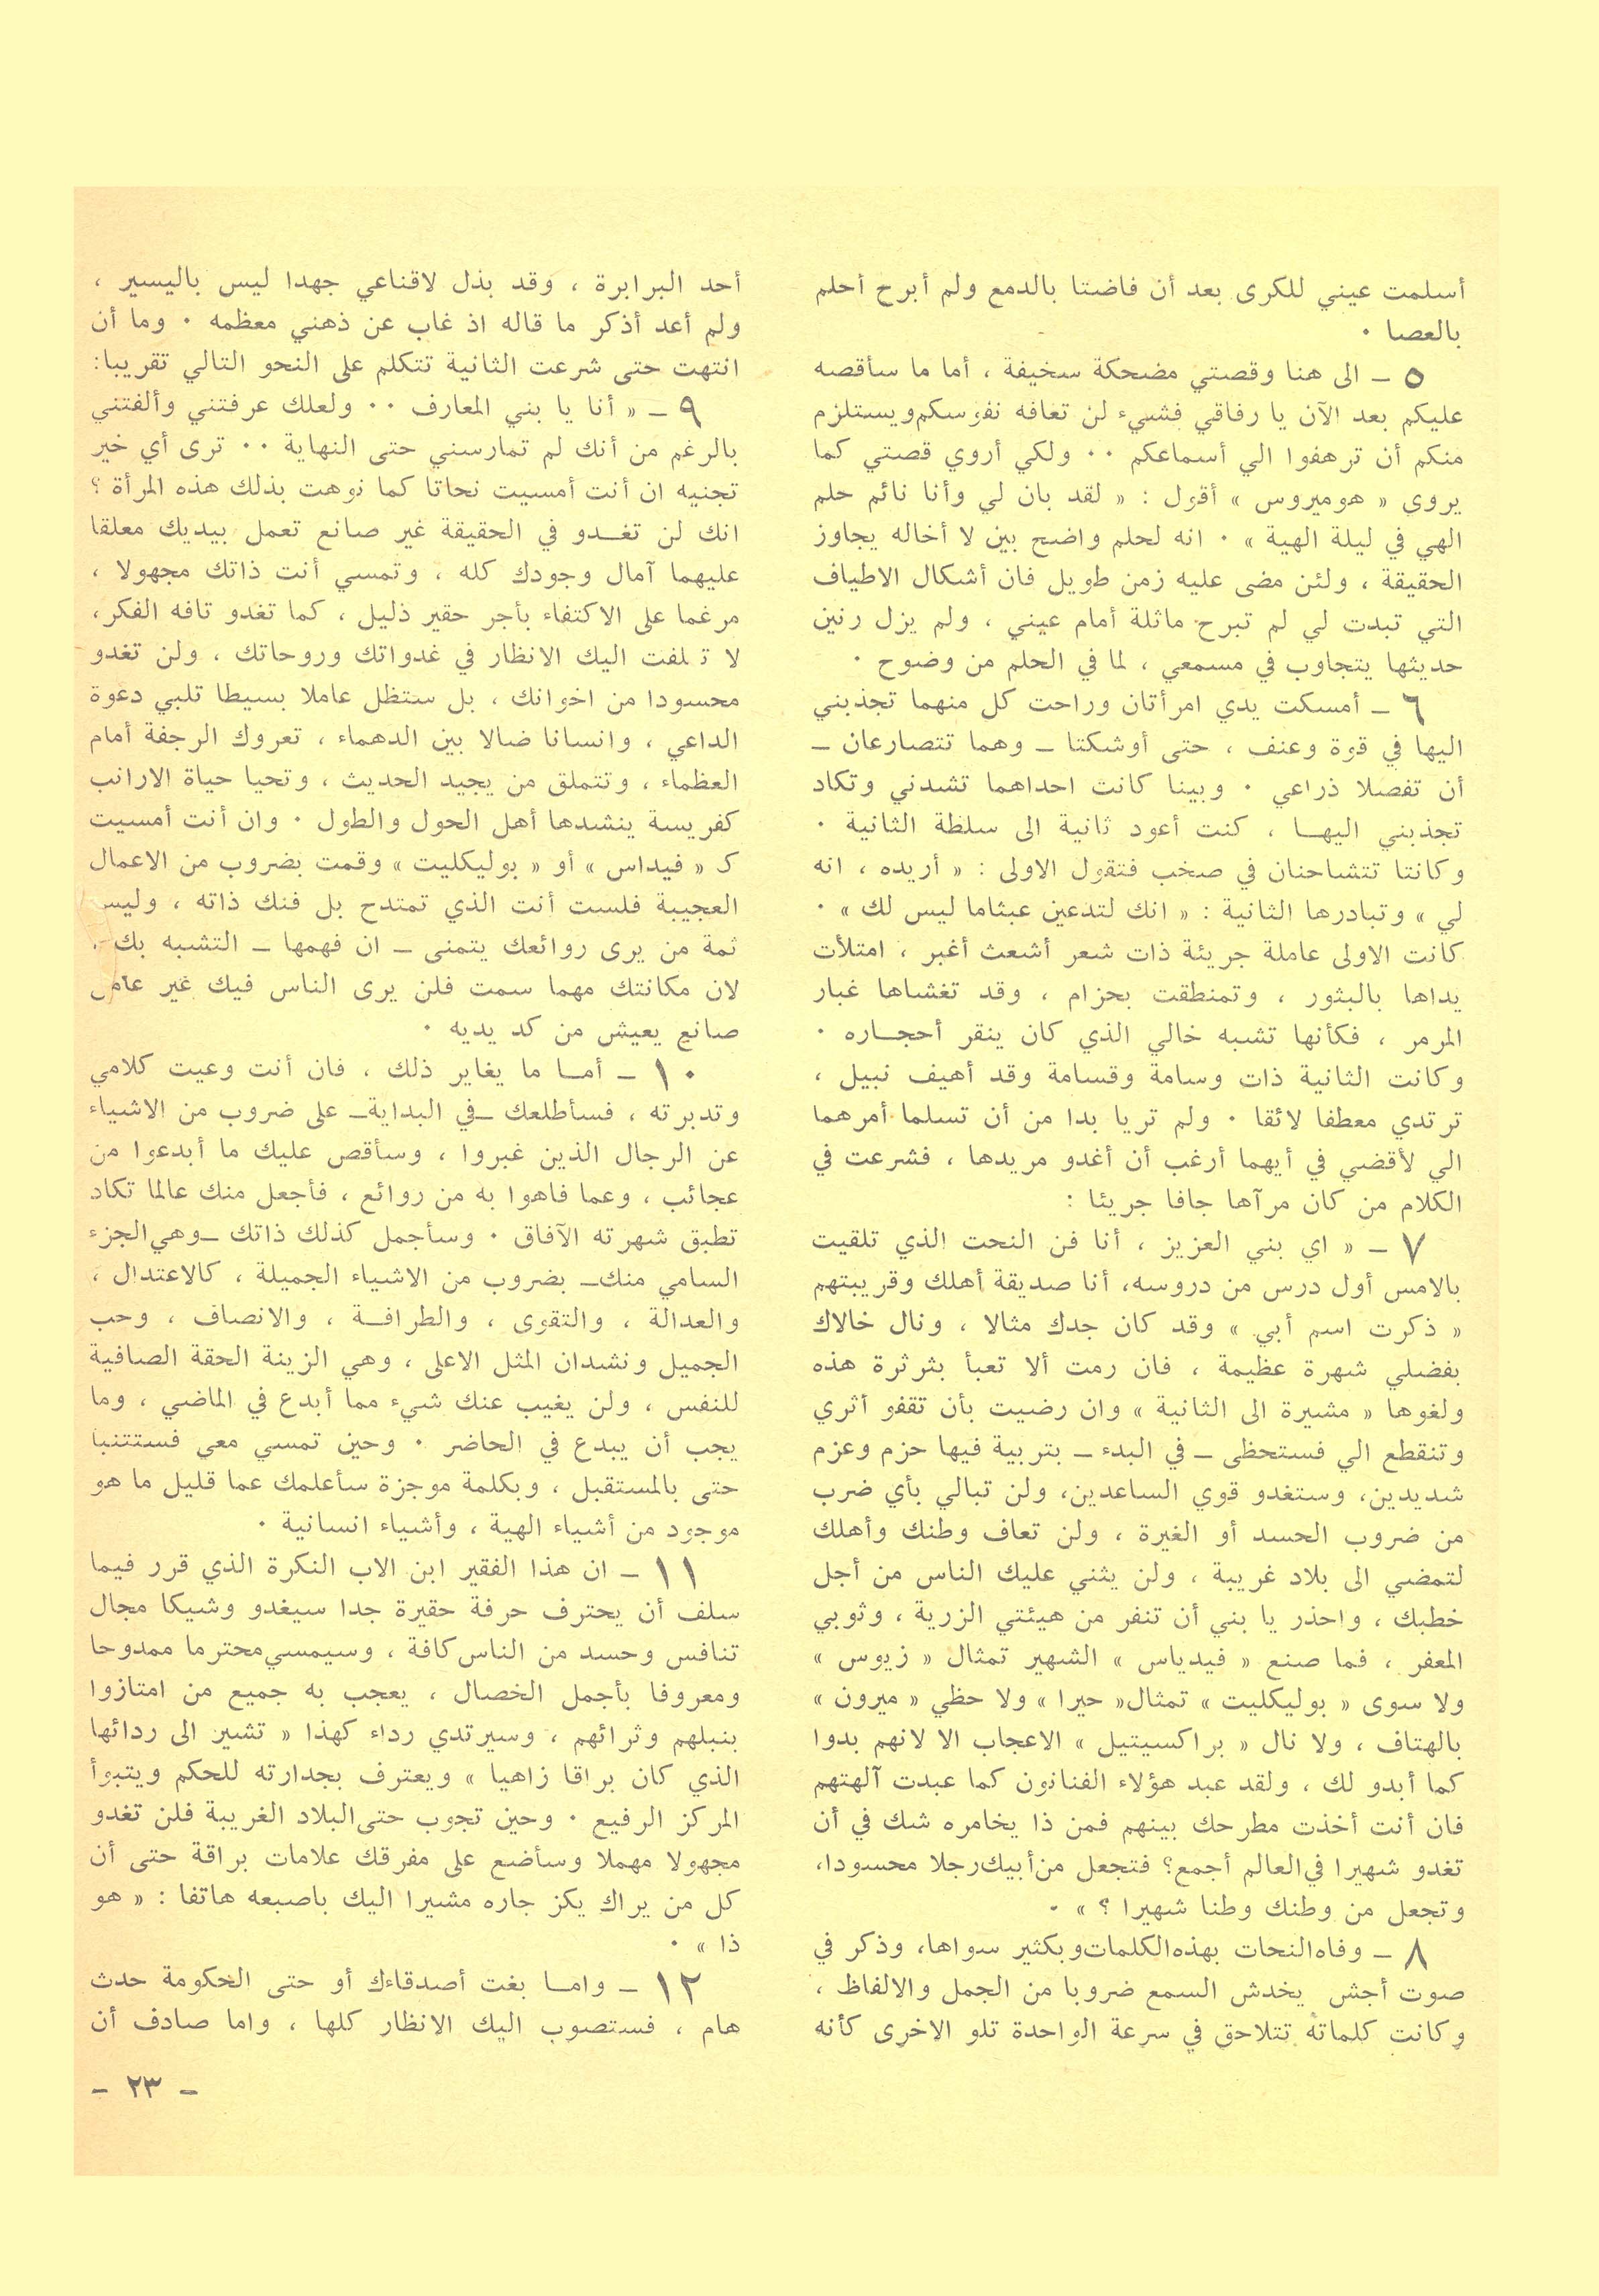 أسلمت عيني للكرى بعد أن فاضتا بالدمع ولم أبرح أحلم
بالعصا ٠
٥ ــ الى هنا وقصتي مضحكة سخيفة ، أما ما سأقصه
عليكم بعد الآن يا رفاقي فشيء لن تعافه نفوسكم ويستلزم
منكم أن ترهفوا الي أسماعكم ٠٠ ولكي أروي قصتي كما
يروي « هوميروس » أقول : « لقد بان لي وأنا نائم حلم
الهي في ليلة الهية » ٠ انه لحلم واضح بين لا أخاله يجاوز
الحقيقة ، ولئن مضى عليه زمن طويل فان أشكال الاطياف
التي تبدت لي لم تبرح ماثلة أمام عيني ، ولم يزل رنين
حديثها يتجاوب في مسمعي ، لما في الحلم من وضوح ٠
٦ ــ أمسكت يدي امرأتان وراحت كل منهما تجذبني
اليها في قوة وعنف ، حتى أوشكتا ــ وهما تتصارعان ــ
أن تفصلا ذراعي ٠ وبينا كانت احداهما تشدني وتكاد
تجذبني اليهــا ، كنت أعود ثانية الى سلطة الثانية ٠
وكانتا تتشاحنان في صخب فتقول الاولى : « أريده ، انه
لي » وتبادرها الثانية : « انك لتدعين عبثاما ليس لك » ٠
كانت الاولى عاملة جريئة ذات شعر أشعث أغبر ، امتلأت
يداها بالبثور ، وتمنطقت بحزام ، وقد تغشاها غبار
المرمر ، فكأنها تشبه خالي الذي كان ينقر أحجــاره ٠
وكانت الثانية ذات وسامة وقسامة وقد أهيف نبيل ،
ترتدي معطفا لائقا ٠ ولم تريا بدا من أن تسلما أمرهما
الي لأقضي في أيهما أرغب أن أغدو مريدها ، فشرعت في
الكلام من كان مرآها جافا جريئا :
٧ ــ « اي بني العزيز ، أنا فن النحت الذي تلقيت
بالامس أول درس من دروسه، أنا صديقة أهلك وقريبتهم
« ذكرت اسم أبي » وقد كان جدك مثالا ، ونال خالاك
بفضلي شهرة عظيمة ، فان رمت ألا تعبأ بثرثرة هذه
ولغوها « مشيرة الى الثانية » وان رضيت بأن تقفو أثري
وتنقطع الي فستحظى ــ في البدء ــ بتربية فيها حزم وعزم
شديدين، وستغدو قوي الساعدين، ولن تبالي بأي ضرب
من ضروب الحسد أو الغيرة ، ولن تعاف وطنك وأهلك
لتمضي الى بلاد غريبة ، ولن يثني عليك الناس من أجل
خطبك ، واحذر يا بني أن تنفر من هيئتي الزرية ، وثوبي
المعفر ، فما صنع « فيدياس » الشهير تمثال « زيوس »
ولا سوى « بوليكليت » تمثال« حيرا » ولا حظي « ميرون »
بالهتاف ، ولا نال « براكسيتيل » الاعجاب الا لانهم بدوا
كما أبدو لك ، ولقد عبد هؤلاء الفنانون كما عبدت آلهتهم
فان أنت أخذت مطرحك بينهم فمن ذا يخامره شك في أن
تغدو شهيرا في العالم أجمع؟ فتجعل من أبيك رجلا محسودا،
وتجعل من وطنك وطنا شهيرا ؟ » ٠
٨ ــ وفاه النحات بهذه الكلمات وبكثير سواها، وذكر في
صوت أجش يخدش السمع ضروبا من الجمل والالفاظ ،
وكانت كلماته تتلاحق في سرعة الواحدة تلو الاخرى كأنه
أحد البرابرة ، وقد بذل لاقناعي جهدا ليس باليسير ،
ولم أعد أذكر ما قاله اذ غاب عن ذهني معظمه ٠ وما أن
انتهت حتى شرعت الثانية تتكلم على النحو التالي تقريبا:
٩ ــ « أنا يا بني المعارف ٠٠ ولعلك عرفتني وألفتني
بالرغم من أنك لم تمارسني حتى النهاية ٠٠ ترى أي خير
تجنيه ان أنت أمسيت نحاتا كما نوهت بذلك هذه المرأة ؟
انك لن تغــدو في الحقيقة غير صانع تعمل بيديك معلقا
عليهما آمال وجودك كله ، وتمسي أنت ذاتك مجهولا ،
مرغما على الاكتفاء بأجر حقير ذليل ، كما تغدو تافه الفكر،
لا تلفت اليك الانظار في غدواتك وروحاتك ، ولن تغدو
محسودا من اخوانك ، بل ستظل عاملا بسيطا تلبي دعوة
الداعي ، وانسانا ضالا بين الدهماء ، تعروك الرجفة أمام
العظماء ، وتتملق من يجيد الحديث ، وتحيا حياة الارانب
كفريسة ينشدها أهل الحول والطول ٠ وان أنت أمسيت
كـ « فيداس » أو « بوليكليت » وقمت بضروب من الاعمال
العجيبة فلست أنت الذي تمتدح بل فنك ذاته ، وليس
ثمة من يرى روائعك يتمنى ــ ان فهمها ــ التشبه بك ،
لان مكانتك مهما سمت فلن يرى الناس فيك غير عامل
صانع يعيش من كد يديه ٠
١٠ ــ أمــا ما يغاير ذلك ، فان أنت وعيت كلامي
وتدبرته ، فسأطلعك ــ في البداية ــ على ضروب من الاشياء
عن الرجال الذين غبروا ، وسأقص عليك ما أبدعوا من
عجائب ، وعما فاهوا به من روائع ، فأجعل منك عالما تكاد
تطبق شهرته الآفاق ٠ وسأجمل كذلك ذاتك ــ وهي الجزء
السامي منك ــ بضروب من الاشياء الجميلة ، كالاعتدال ،
والعدالة ، والتقوى ، والطرافــة ، والانصاف ، وحب
الجميل ونشدان المثل الاعلى ، وهي الزينة الحقة الصافية
للنفس ، ولن يغيب عنك شيء مما أبدع في الماضي ، وما
يجب أن يبدع في الحاضر ٠ وحين تمسي معي فستتنبأ
حتى بالمستقبل ، وبكلمة موجزة سأعلمك عما قليل ما هو
موجود من أشياء الهية ، وأشياء انسانية ٠
١١ ــ ان هذا الفقير ابن الاب النكرة الذي قرر فيما
سلف أن يحترف حرفة حقيرة جدا سيغدو وشيكا مجال
تنافس وحسد من الناس كافة ، وسيمسي محترما ممدوحا
ومعروفا بأجمل الخصال ، يعجب به جميع من امتازوا
بنبلهم وثرائهم ، وسيرتدي رداء كهذا « تشير الى ردائها
الذي كان براقا زاهيا » ويعترف بجدارته للحكم ويتبوأ
المركز الرفيع ٠ وحين تجوب حتى البلاد الغريبة فلن تغدو
مجهولا مهملا وسأضع على مفرقك علامات براقة حتى أن
كل من يراك يكز جاره مشيرا اليك باصبعه هاتفا : « هو
ذا » ٠
١٢ ــ وامــا بغت أصدقاءك أو حتى الحكومة حدث
هام ، فستصوب اليك الانظار كلها ، واما صادف أن
ــ ٢٣ ــ